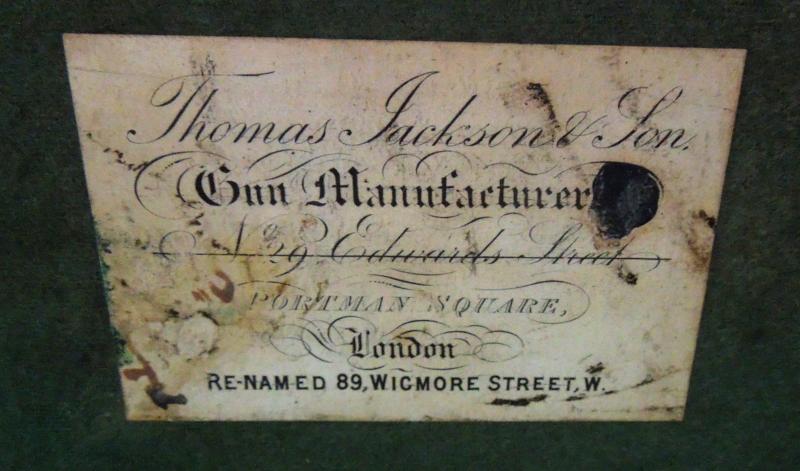 Thomas Jackson & Son.
Gun Manufacturer
No 29 Edwards Street
PORTMAN SQUARE,
London
RE-NAMED 89, WIGMORE STREET, W.